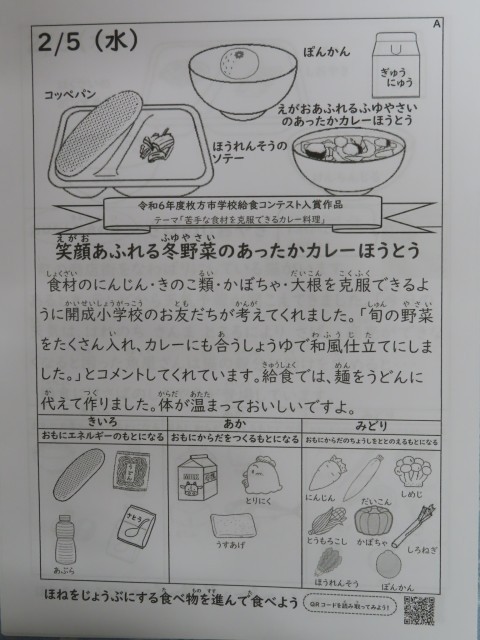 A
2/5（水）
ぽんかん
ぎゅう
にゅう
コッペパン
えがおあふれるふゆやさい
のあったかカレーほうとう
ほうれんそうの
ソテー
令和6年度枚方市学校給食コンテスト入賞作品
テーマ「苦手な食材を克服できるカレー料理」
えがお ふゆやさい
笑顔あふれる冬野菜のあったかカレーほうとう
しょくざい るい だいこん こくふく
食材のにんじん・きのこ類・かぼちゃ・大根を克服できるよ
かいせいしょうがっこう とも かんが しゅん やさい
うに開成小学校のお友だちが考えてくれました。「旬の野菜
い あ わふうじた
をたくさん入れ、カレーにも合うしょうゆで和風仕立てにしま
きゅうしょく めん
した。」とコメントしてくれています。給食では、麺をうどんに
か つく からだ あたた
代えて作りました。体が温まっておいしいですよ。
きいろ
おもにエネルギーのもとになる
うどん
さとう
あぶら
あか
おもにからだをつくるもとになる
とりにく
うすあげ
みどり
おもにからだのちょうしをととのえるもとになる
にんじん
だいこん
しめじ
とうもろこし
かぼちゃ
しろねぎ
ほうれんそう
ぽんかん
た もの すす た
ほねをじょうぶにする食べ物を進んで食べよう
QRコードを読み取ってみよう!